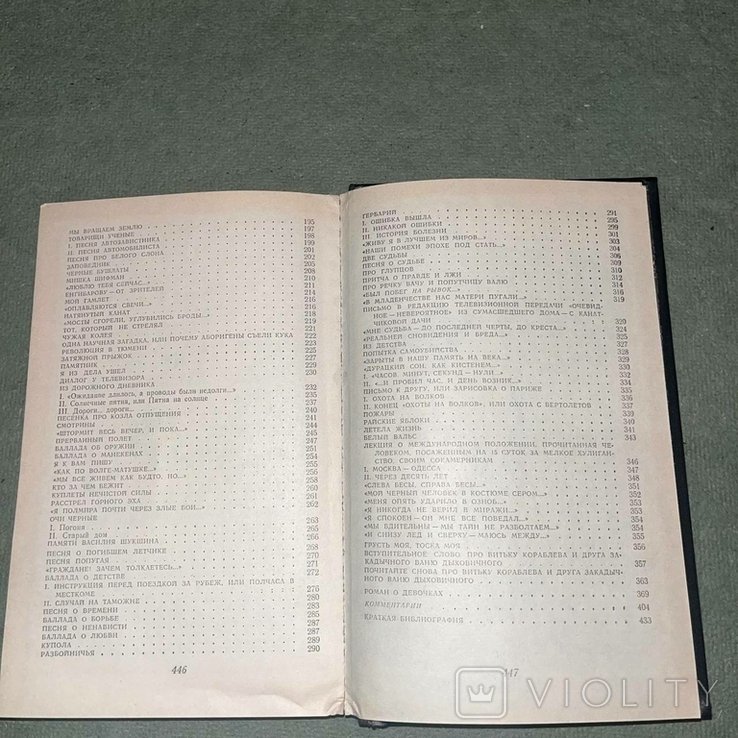 МЫ ВРАЩАЕМ ЗЕМЛЮ 195
ТОВАРИЩИ УЧЕНЫЕ 197
I. ПЕСНЯ АВТОЗАВИСТНИКА 198
II. ПЕСНЯ АВТОМОБИЛИСТА 199
ПЕСНЯ ПРО БЕЛОГО СЛОНА 201
ЗАПОВЕДНИК
ЧЕРНЫЕ БУШЛАТЫ
МИШКА ШИФМАН
«ЛЮБЛЮ ТЕБЯ СЕЙЧАС...»
ЕНГИБАРОВУ — ОТ ЗРИТЕЛЕЙ
МОЙ ГАМЛЕТ
«ОПЛАВЛЯЮТСЯ СВЕЧИ...»
НАТЯНУТЫЙ КАНАТ
«МОСТЫ СГОРЕЛИ, УГЛУБИЛИСЬ БРОДЫ...»
ТОТ, КОТОРЫЙ НЕ СТРЕЛЯЛ
ЧУЖАЯ КОЛЕЯ
ОДНА НАУЧНАЯ ЗАГАДКА, ИЛИ ПОЧЕМУ АБОРИГЕНЫ СЪЕЛИ КУКА
РЕВОЛЮЦИЯ В ТЮМЕНИ
ЗАТЯЖНОЙ ПРЫЖОК
ПАМЯТНИК
Я ИЗ ДЕЛА УШЕЛ
ДИАЛОГ У ТЕЛЕВИЗОРА
ИЗ ДОРОЖНОГО ДНЕВНИКА
I. «Ожидание длилось, а проводы были недолги...» 232
II. Солнечные пятна, или Пятна на солнце 235
III. Дороги... дороги... 237
ПЕСЕНКА ПРО КОЗЛА ОТПУЩЕНИЯ 240
СМОТРИНЫ 241
«ШТОРМИТ ВЕСЬ ВЕЧЕР, И ПОКА...» 243
ПРЕРВАННЫЙ ПОЛЕТ
БАЛЛАДА ОБ ОРУЖИИ
БАЛЛАДА О МАНЕКЕНАХ
Я К ВАМ ПИШУ
«КАК ПО ВОЛГЕ-МАТУШКЕ...»
«МЫ ВСЕ ЖИВЕМ КАК БУДТО, НО...»
КТО ЗА ЧЕМ БЕЖИТ
КУПЛЕТЫ НЕЧИСТОЙ СИЛЫ
РАССТРЕЛ ГОРНОГО ЭХА
«Я ПОЛМИРА ПОЧТИ ЧЕРЕЗ ЗЛЫЕ БОИ...»
ОЧИ ЧЕРНЫЕ
I. Погоня
II. Старый дом
ПАМЯТИ ВАСИЛИЯ ШУКШИНА
ПЕСНЯ О ПОГИБШЕМ ЛЕТЧИКЕ
ПЕСНЯ ПОПУГАЯ
«ГРАЖДАНЕ! ЗАЧЕМ ТОЛКАЕТЕСЬ...»
БАЛЛАДА О ДЕТСТВЕ 272
I. ИНСТРУКЦИЯ ПЕРЕД ПОЕЗДКОЙ ЗА РУБЕЖ, ИЛИ ПОЛЧАСА В
МЕСТКОМЕ
II. СЛУЧАЙ НА ТАМОЖНЕ 280
ПЕСНЯ О ВРЕМЕНИ
БАЛЛАДА О БОРЬБЕ
ПЕСНЯ О НЕНАВИСТИ 287
БАЛЛАДА О ЛЮБВИ 287
КУПОЛА 289
РАЗБОЙНИЧЬЯ 290
446
ГЕРБАРИЙ 291
I. ОШИБКА ВЫШЛА 295
II. НИКАКОЙ ОШИБКИ 299
III. ИСТОРИЯ БОЛЕЗНИ 301
«ЖИВУ Я В ЛУЧШЕМ ИЗ МИРОВ...» 303
«НАШИ ПОМЕХИ ЭПОХЕ ПОД СТАТЬ...» 304
ДВЕ СУДЬБЫ
ПЕСНЯ О СУДЬБЕ
ПРО ГЛУПЦОВ
ПРИТЧА О ПРАВДЕ И ЛЖИ
ПРО РЕЧКУ ВАЧУ И ПОПУТЧИЦУ ВАЛЮ
«БЫЛ ПОБЕГ НА РЫВОК...»
«В МЛАДЕНЧЕСТВЕ НАС МАТЕРИ ПУГАЛИ...»
ПИСЬМО В РЕДАКЦИЮ ТЕЛЕВИЗИОННОЙ ПЕРЕДАЧИ «ОЧЕВИД-
НОЕ — НЕВЕРОЯТНОЕ» ИЗ СУМАСШЕДШЕГО ДОМА — С КАНАТ-
ЧИКОВОЙ ДАЧИ
«МНЕ СУДЬБА — ДО ПОСЛЕДНЕЙ ЧЕРТЫ, ДО КРЕСТА...»
«РЕАЛЬНЕЙ СНОВИДЕНИЯ И БРЕДА...»
ИЗ ДЕТСТВА
ПОПЫТКА САМОУБИЙСТВА
«ЗАРЫТЫ В НАШУ ПАМЯТЬ НА ВЕКА...»
«ДУРАЦКИЙ СОН, КАК КИСТЕНЕМ...»
I. «ЧАСОВ, МИНУТ, СЕКУНД — НУЛИ...»
II. «...И ПРОБИЛ ЧАС, И ДЕНЬ ВОЗНИК...»
ПИСЬМО К ДРУГУ, ИЛИ ЗАРИСОВКА О ПАРИЖЕ
I. ОХОТА НА ВОЛКОВ
II. КОНЕЦ «ОХОТЫ НА ВОЛКОВ», ИЛИ ОХОТА С ВЕРТОЛЕТОВ
ПОЖАРЫ
РАЙСКИЕ ЯБЛОКИ
ЛЕТЕЛА ЖИЗНЬ
БЕЛЫЙ ВАЛЬС 343
ЛЕКЦИЯ О МЕЖДУНАРОДНОМ ПОЛОЖЕНИИ, ПРОЧИТАННАЯ ЧЕ-
ЛОВЕКОМ, ПОСАЖЕННЫМ НА 15 СУТОК ЗА МЕЛКОЕ ХУЛИГАН-
СТВО, СВОИМ СОКАМЕРНИКАМ 346
I. МОСКВА — ОДЕССА 347
II. ЧЕРЕЗ ДЕСЯТЬ ЛЕТ 348
«СЛЕВА БЕСЫ, СПРАВА БЕСЫ...» 351
«МОЙ ЧЕРНЫЙ ЧЕЛОВЕК В КОСТЮМЕ СЕРОМ...» 352
«МЕНЯ ОПЯТЬ УДАРИЛО В ОЗНОБ...» 353
«Я НИКОГДА НЕ ВЕРИЛ В МИРАЖИ...»
«Я СПОКОЕН — ОН МНЕ ВСЕ ПОВЕДАЛ...»
«МЫ БДИТЕЛЬНЫ — МЫ ТАЙН НЕ РАЗБОЛТАЕМ...»
«И СНИЗУ ЛЕД И СВЕРХУ — МАЮСЬ МЕЖДУ...»
ГРУСТЬ МОЯ, ТОСКА МОЯ 356
ВСТУПИТЕЛЬНОЕ СЛОВО ПРО ВИТЬКУ КОРАБЛЕВА И ДРУГА ЗА-
КАДЫЧНОГО ВАНЮ ДЫХОВИЧНОГО 357
ПОЧИТАЙТЕ СНОВА ПРО ВИТЬКУ КОРАБЛЕВА И ДРУГА ЗАКАДЫЧ-
НОГО ВАНЮ ДЫХОВИЧНОГО 363
РОМАН О ДЕВОЧКАХ 369
КОММЕНТАРИИ 404
КРАТКАЯ БИБЛИОГРАФИЯ 433
447
VIOLITY